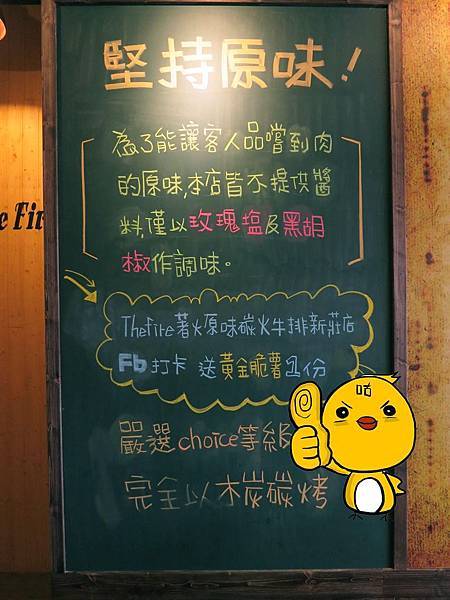 堅持原味!
為了能讓客人品嚐到肉
的原味,本店皆不提供醬
料,僅以玫瑰塩及黑胡
椒作調味。
Thefire著火原味碳火牛排新莊店
Fb打卡 送黃金脆薯1份
嚴選choice等級
完全以木炭碳烤
咕
e Fir